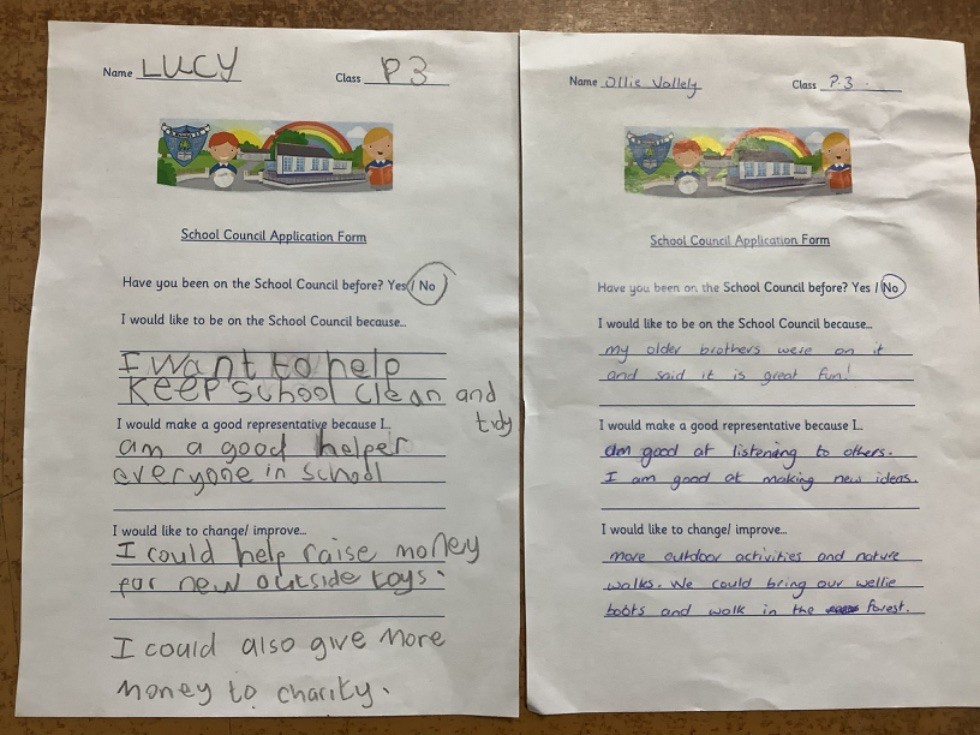 Name LUCY Class P3
School Council Application Form
Have you been on the School Council before? Yes / No
I would like to be on the School Council because...
I want to help
keep school clean and
tidy
I would make a good representative because I...
am a good helper
everyone in school
I would like to change/ improve...
I could help raise money
for new outside toys.
I could also give more
money to charity.
Name Ollie Vallely Class P.3.
School Council Application Form
Have you been on the School Council before? Yes / No
I would like to be on the School Council because...
my older brothers were on it
and said it is great fun!
I would make a good representative because I...
am good at listening to others.
I am good at making new ideas.
I would like to change/ improve...
more outdoor activities and nature
walks. We could bring our wellie
boots and walk in the forest.